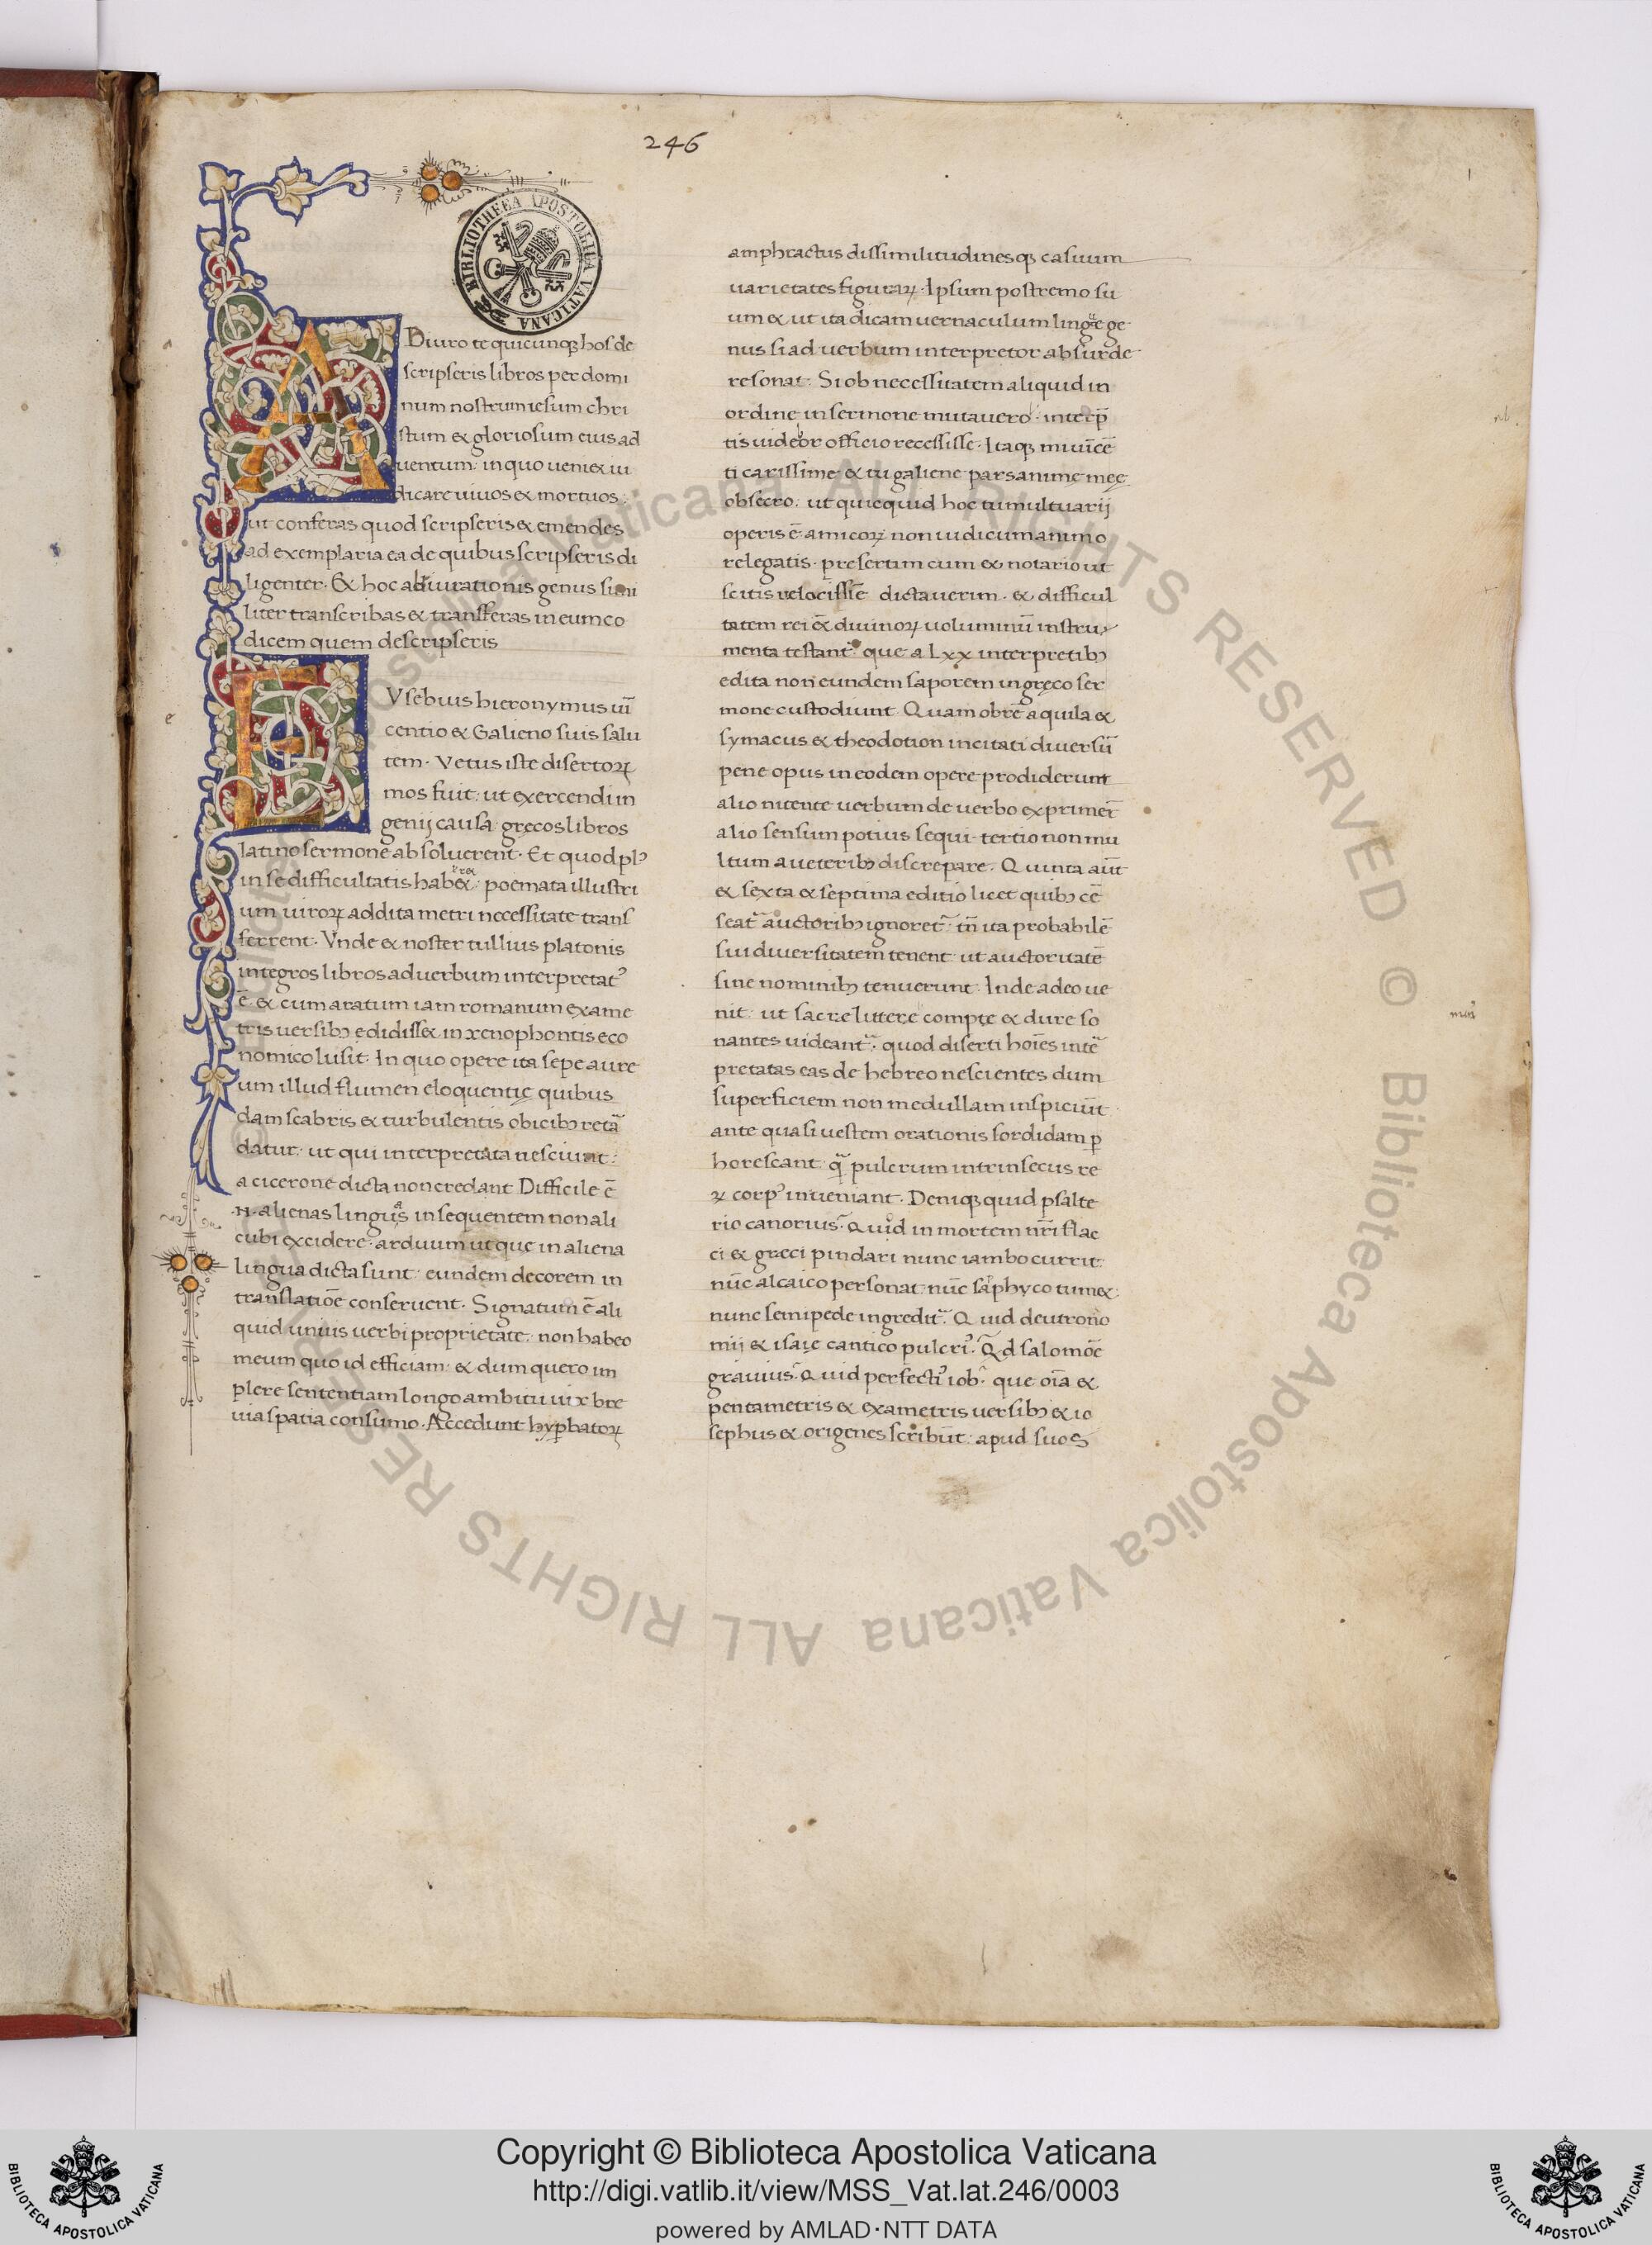 246
1
BIBLIOTHECA APOSTOLICA VATICANA
ADiuro te quicunq; hos de
scripseris libros per domi
num nostrum iesum chri
stum & gloriosum eius ad
uentum: in quo ueniet iu
dicare uiuos & mortuos:
ut conferas quod scripseris & emendes
ad exemplaria ea de quibus scripseris di
ligenter. Et hoc adiurationis genus simi
liter transcribas & transferas in eum co
dicem quem descripseris
EVsebius hieronymus uī
centio & Galieno suis salu
tem. Vetus iste disertoꝝ
mos fuit: ut exercendi in
genij causa grecos libros
latino sermone absoluerent. Et quod plꝰ
in se difficultatis habet: poemata illustri
um uiroꝝ addita metri necessitate trans
ferrent. Vnde & noster tullius platonis
integros libros ad uerbum interpretatꝰ
ē. & cum aratum iam romanum exame
tris uersibꝫ edidisset in xenophontis eco
nomico lusit. In quo opere ita sepe aure
um illud flumen eloquentię quibus
dam scabris & turbulentis obicibꝫ reta᷑
datur: ut qui interpretata nesciunt:
a cicerone dicta non credant. Difficile ē
.n. alienas linguas insequentem non ali
cubi excidere. arduum ut que in aliena
lingua dicta sunt: eundem decorem in
translatiōe conseruent. Signatum ē ali
quid unius uerbi proprietate: non habeo
meum quo id efficiam: & dum quero im
plere sententiam longo ambitu uix bre
uia spatia consumo. Accedunt hyꝑbatoꝝ
amphractus dissimilitudinesq; casuum
uarietates figuraꝝ. Ipsum postremo su
um & ut ita dicam uernaculum linguę ge
nus si ad uerbum interpretor absurde
resonat: Si ob necessitatem aliquid in
ordine in sermone mutauero: interp̄
tis uideor officio recessisse. Itaq; mi uīcē
ti carissime & tu galiene pars anime meę
obsecro: ut quicquid hoc tumultuarij
operis ē: amicoꝝ non iudicum animo
relegatis. presertim cum & notario ut
scitis uelocissīe dictauerim. & difficul
tatem rei ēt diuinoꝝ uoluminū instru
menta testant᷑. que a Lxx interpretibꝫ
edita non eundem saporem in gręco ser
mone custodiunt. Quam obrē aquila &
symacus & theodotion incitati diuersū
pene opus in eodem opere prodiderunt
alio nitente uerbum de uerbo exprimer̄
alio sensum potius sequi. tertio non mu
ltum a ueteribꝫ discrepare. Quinta aūt
& sexta & septima editio licet quibꝫ cē
seat᷑ auctoribꝫ ignoret᷑: tn̄ ita probabilē
sui diuersitatem tenent: ut auctoritatē
sine nominibꝫ tenuerunt. Inde adeo ue
nit: ut sacre littere compte & dure so
nantes uideant᷑: quod diserti hoīes inte᷑
pretatas eas de hebreo nescientes dum
superficiem non medullam inspiciūt
ante quasi uestem orationis sordidam ꝑ
horescant: qͣ pulcrum intrinsecus re
ꝝ corpꝰ inueniant. Deniq; quid psalte
rio canorius? Quid in mortem nr̄i flac
ci & greci pindari nunc iambo currit:
nūc alcaico personat: nūc saphyco tumet:
nunc semipede ingredit᷑. Quid deutrono
mij & isaie cantico pulcriꝰ? Qd salomōe
grauius? Quid perfectiꝰ iob? que oīa &
pentametris & exametris uersibꝫ & io
sephus & origenes scribūt: apud suos
© Biblioteca Apostolica Vaticana ALL RIGHTS RESERVED © Biblioteca Apostolica Vaticana ALL RIGHTS RESERVED
Copyright © Biblioteca Apostolica Vaticana
http://digi.vatlib.it/view/MSS_Vat.lat.246/0003
powered by AMLAD·NTT DATA
BIBLIOTECA APOSTOLICA VATICANA
BIBLIOTECA APOSTOLICA VATICANA